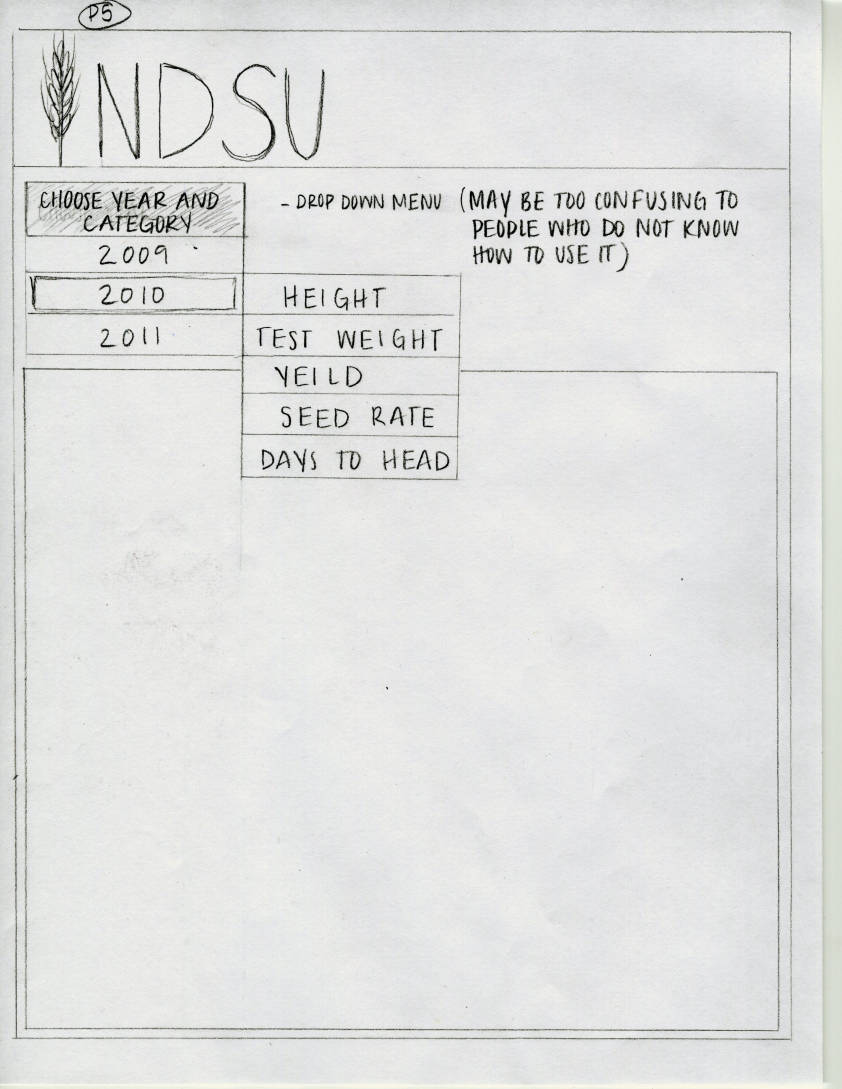 P5
NDSU
CHOOSE YEAR AND
CATEGORY
- DROP DOWN MENU (MAY BE TOO CONFUSING TO
PEOPLE WHO DO NOT KNOW
HOW TO USE IT)
2009
2010
2011
HEIGHT
TEST WEIGHT
YEILD
SEED RATE
DAYS TO HEAD